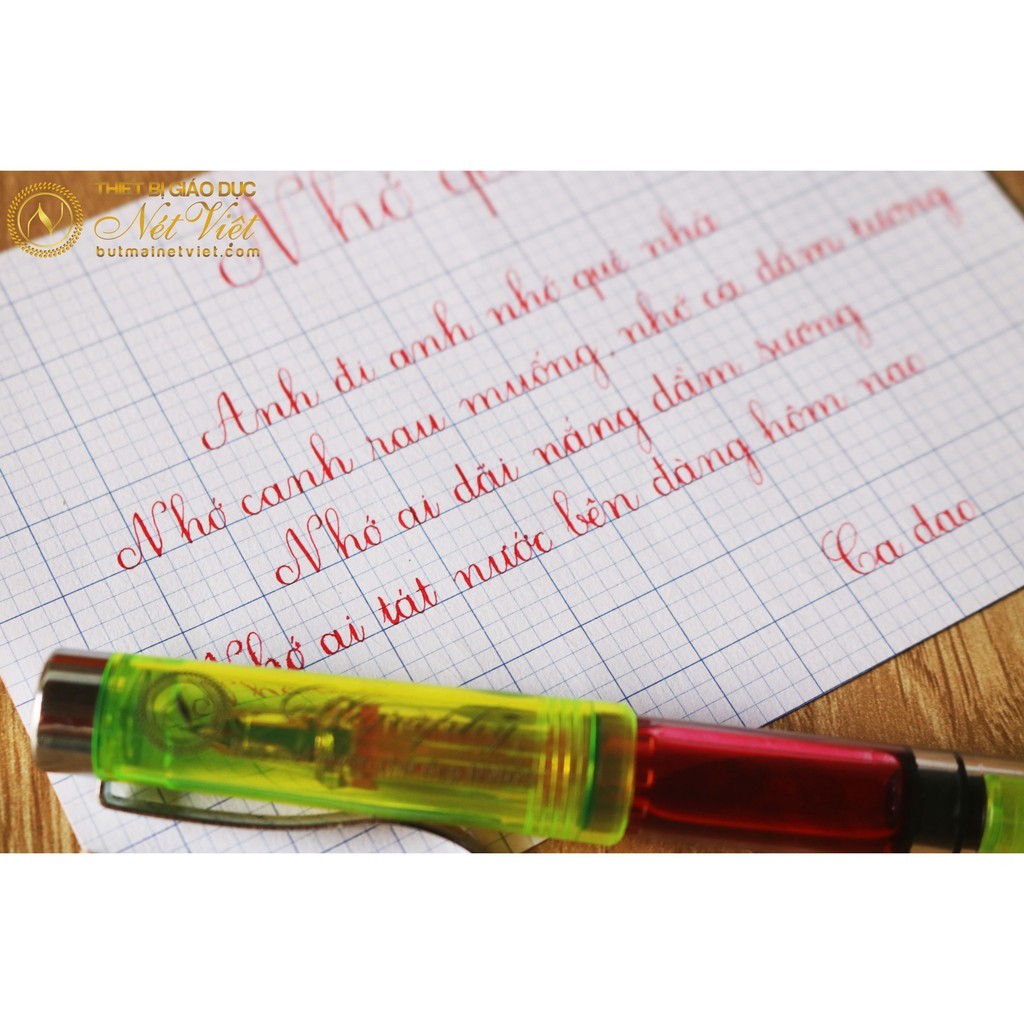 THIẾT BỊ GIÁO DỤC
Nét Việt
butmainetviet.com
Nhớ
Anh đi anh nhớ quê nhà
Nhớ canh rau muống, nhớ cà dầm tương
Nhớ ai dãi nắng dầm sương
Nhớ ai tát nước bên đàng hôm nao
Ca dao
Calligraphy